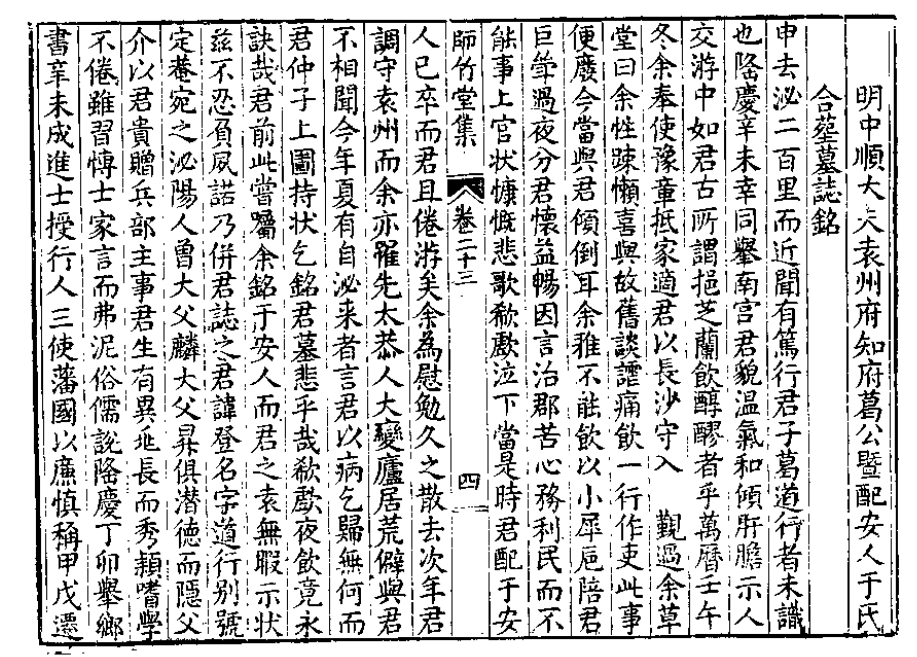 明中順大夫袁州府知府葛公暨配安人于氏
合塟墓誌銘
申去泌二百里而近聞有篤行君子葛道行者未識
也隆慶辛未幸同擧南宫君貌温氣和傾肝膽示人
交游中如君古所謂挹芝蘭飲醇醪者乎萬曆壬午
冬余奉使豫章抵家適君以長沙守入　覲過余草
堂曰余性踈懶喜與故舊談謔痛飲一行作吏此事
便廢今當與君傾倒耳余雅不能飲以小犀巵陪君
巨斝過夜分君懐益暢因言治郡苦心務利民而不
能事上官状慷慨悲歌欷歔泣下當是時君配于安
師竹堂集　卷二十三　四
人已卒而君且倦游矣余為慰勉久之散去次年君
調守袁州而余亦罹先太恭人大變廬居荒僻與君
不相聞今年夏有自泌来者言君以病乞歸無何而
君仲子上圖持状乞銘君墓悲乎哉欷歔夜飲竟永
訣哉君前此嘗囑余銘于安人而君之袁無暇示状
兹不忍負夙諾乃併君誌之君諱登名字道行别號
定菴宛之泌陽人曽大父麟大父昇俱潜德而隱父
介以君貴贈兵部主事君生有異兆長而秀頴嗜學
不倦雖習博士家言而弗泥俗儒說隆慶丁卯擧鄉
書辛未成進士授行人三使藩國以廉慎稱甲戌遷